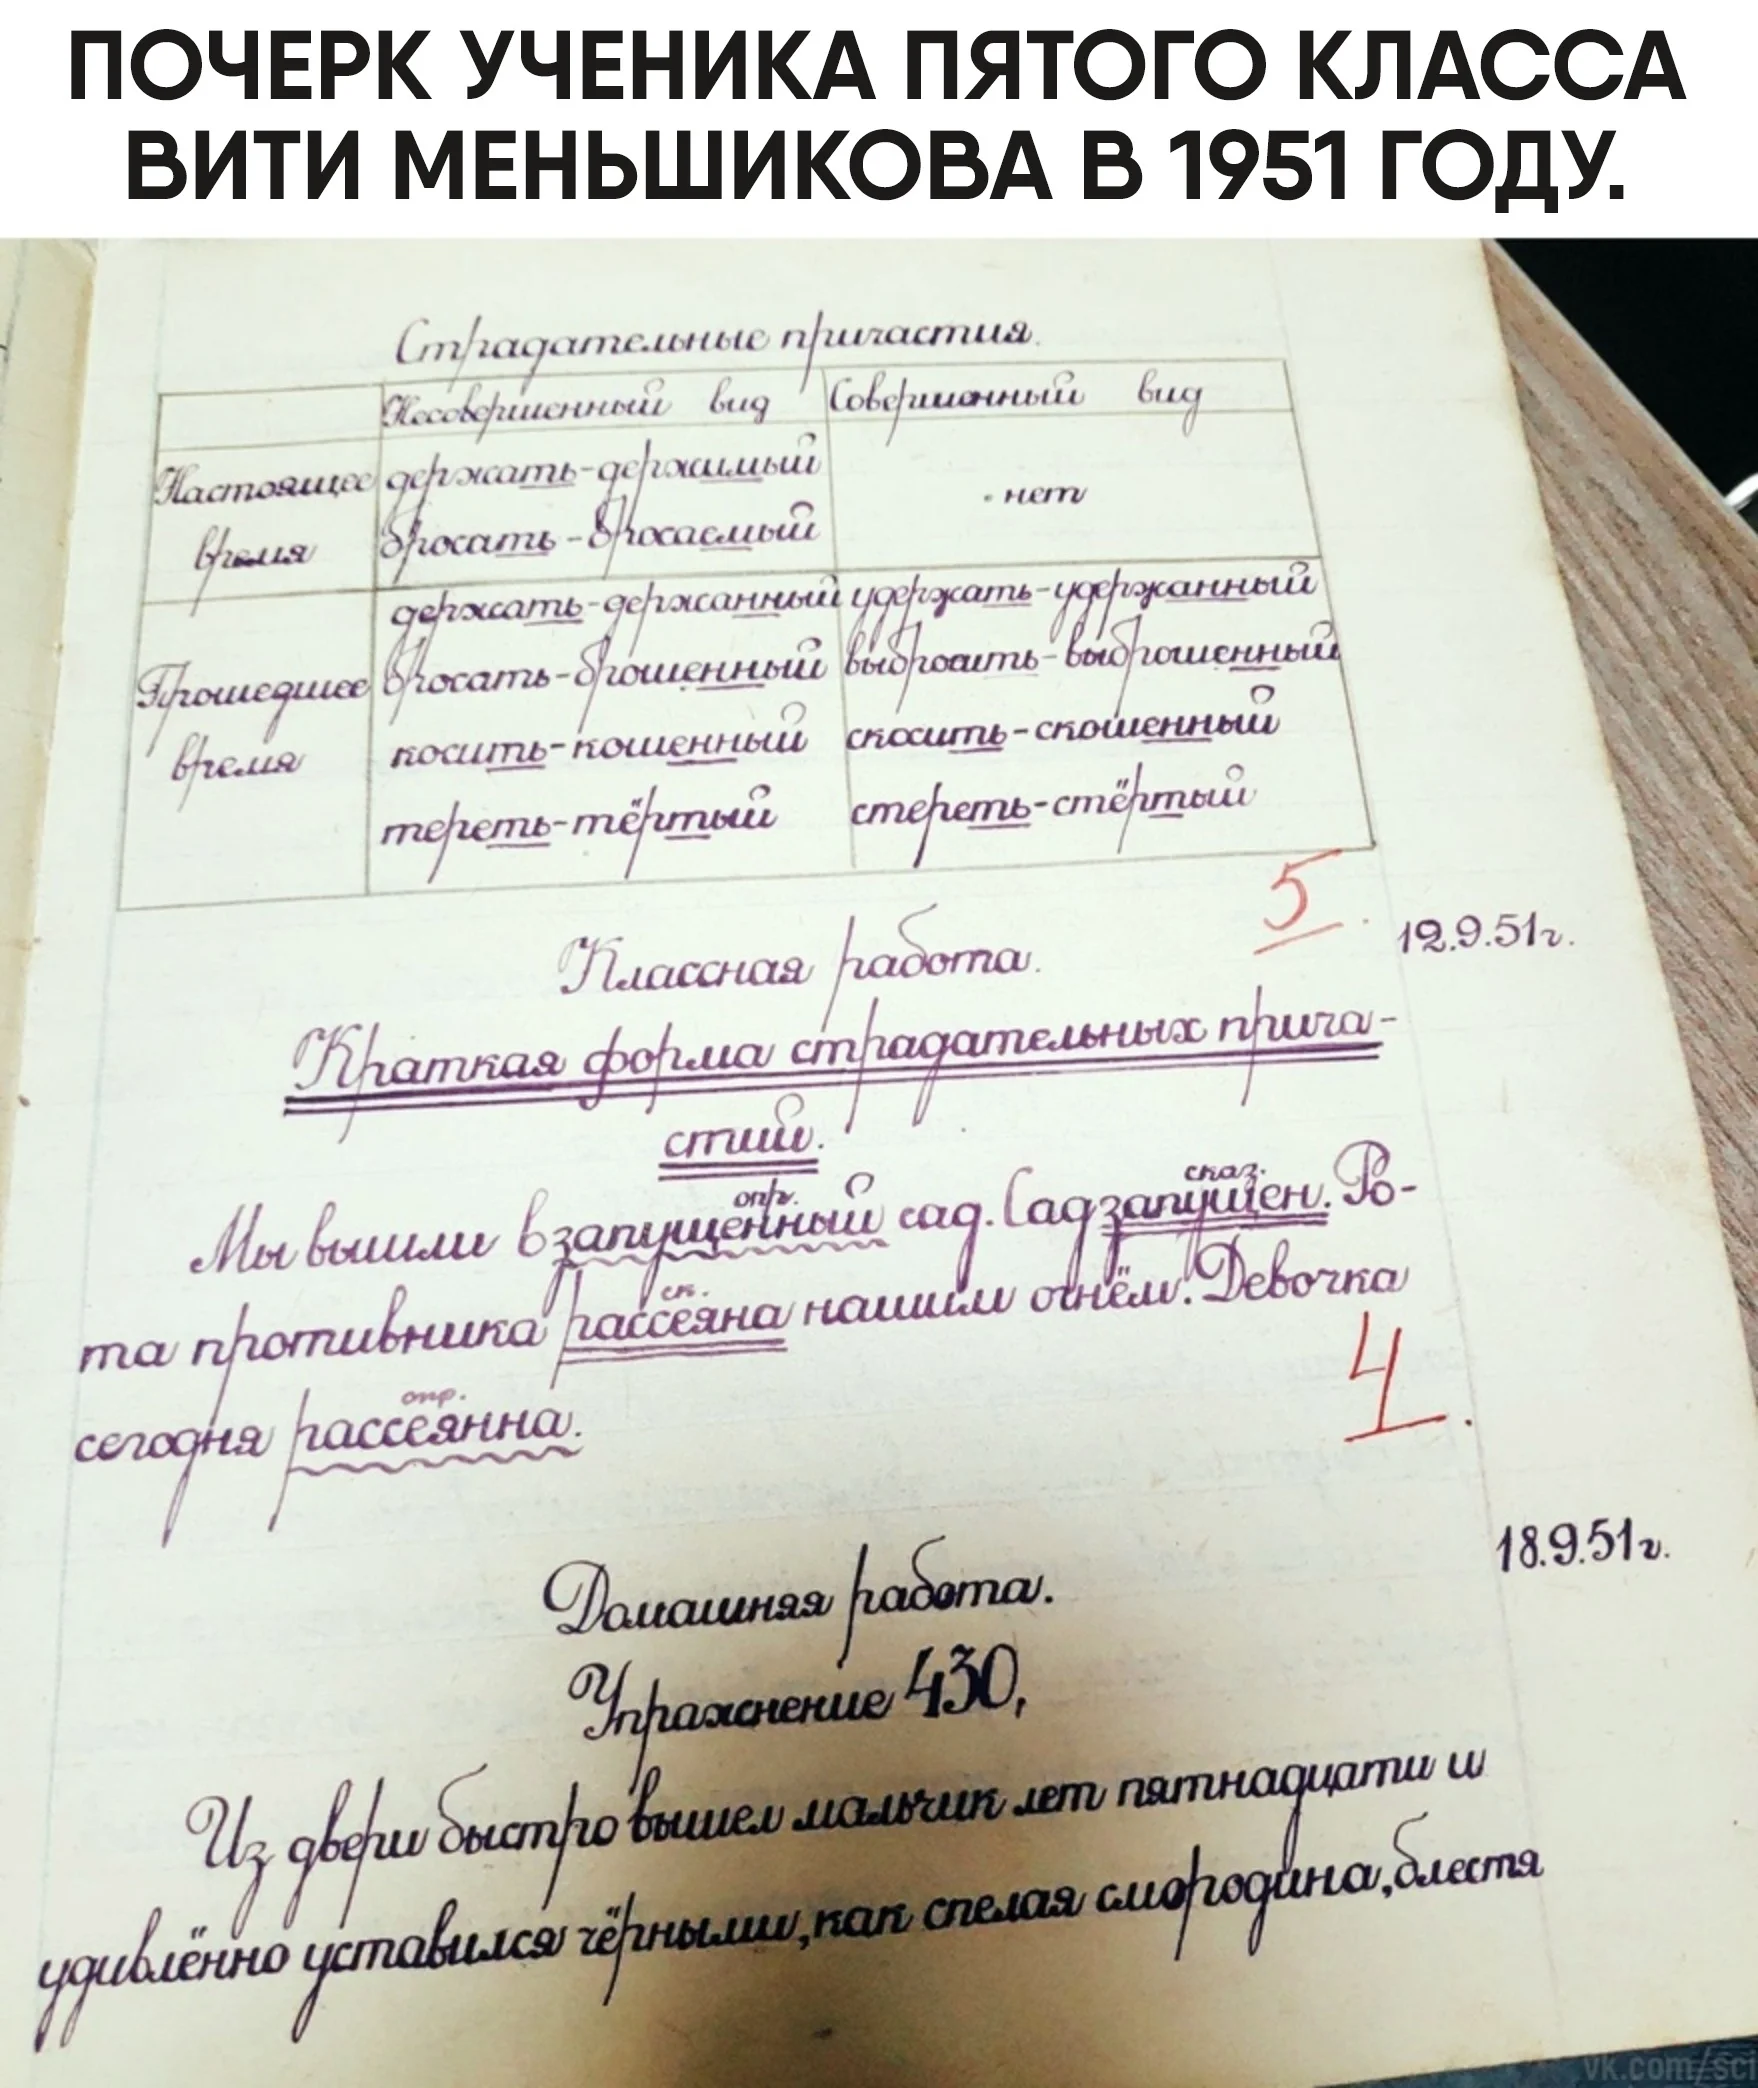 ПОЧЕРК УЧЕНИКА ПЯТОГО КЛАССА
ВИТИ МЕНЬШИКОВА В 1951 ГОДУ.
Страдательные причастия.
Несовершенный вид Совершенный вид
Настоящее время
держать-держимый
бросать-бросаемый
нет
Прошедшее время
держать-держанный удержать-удержанный
бросать-брошенный выбросить-выброшенный
косить-кошенный скосить-скошенный
тереть-тёртый стереть-стёртый
5
12.9.51г.
Классная работа.
Краткая форма страдательных прича-
стий.
опр. сказ.
Мы вышли в запущенный сад. Сад запущен. Ро-
ск.
та противника рассеяна нашим огнём. Девочка
опр.
сегодня рассеянна.
4
18.9.51г.
Домашняя работа.
Упражнение 430,
Из двери быстро вышел мальчик лет пятнадцати и
удивлённо уставился чёрными, как спелая смородина, блестя
vk.com/sci